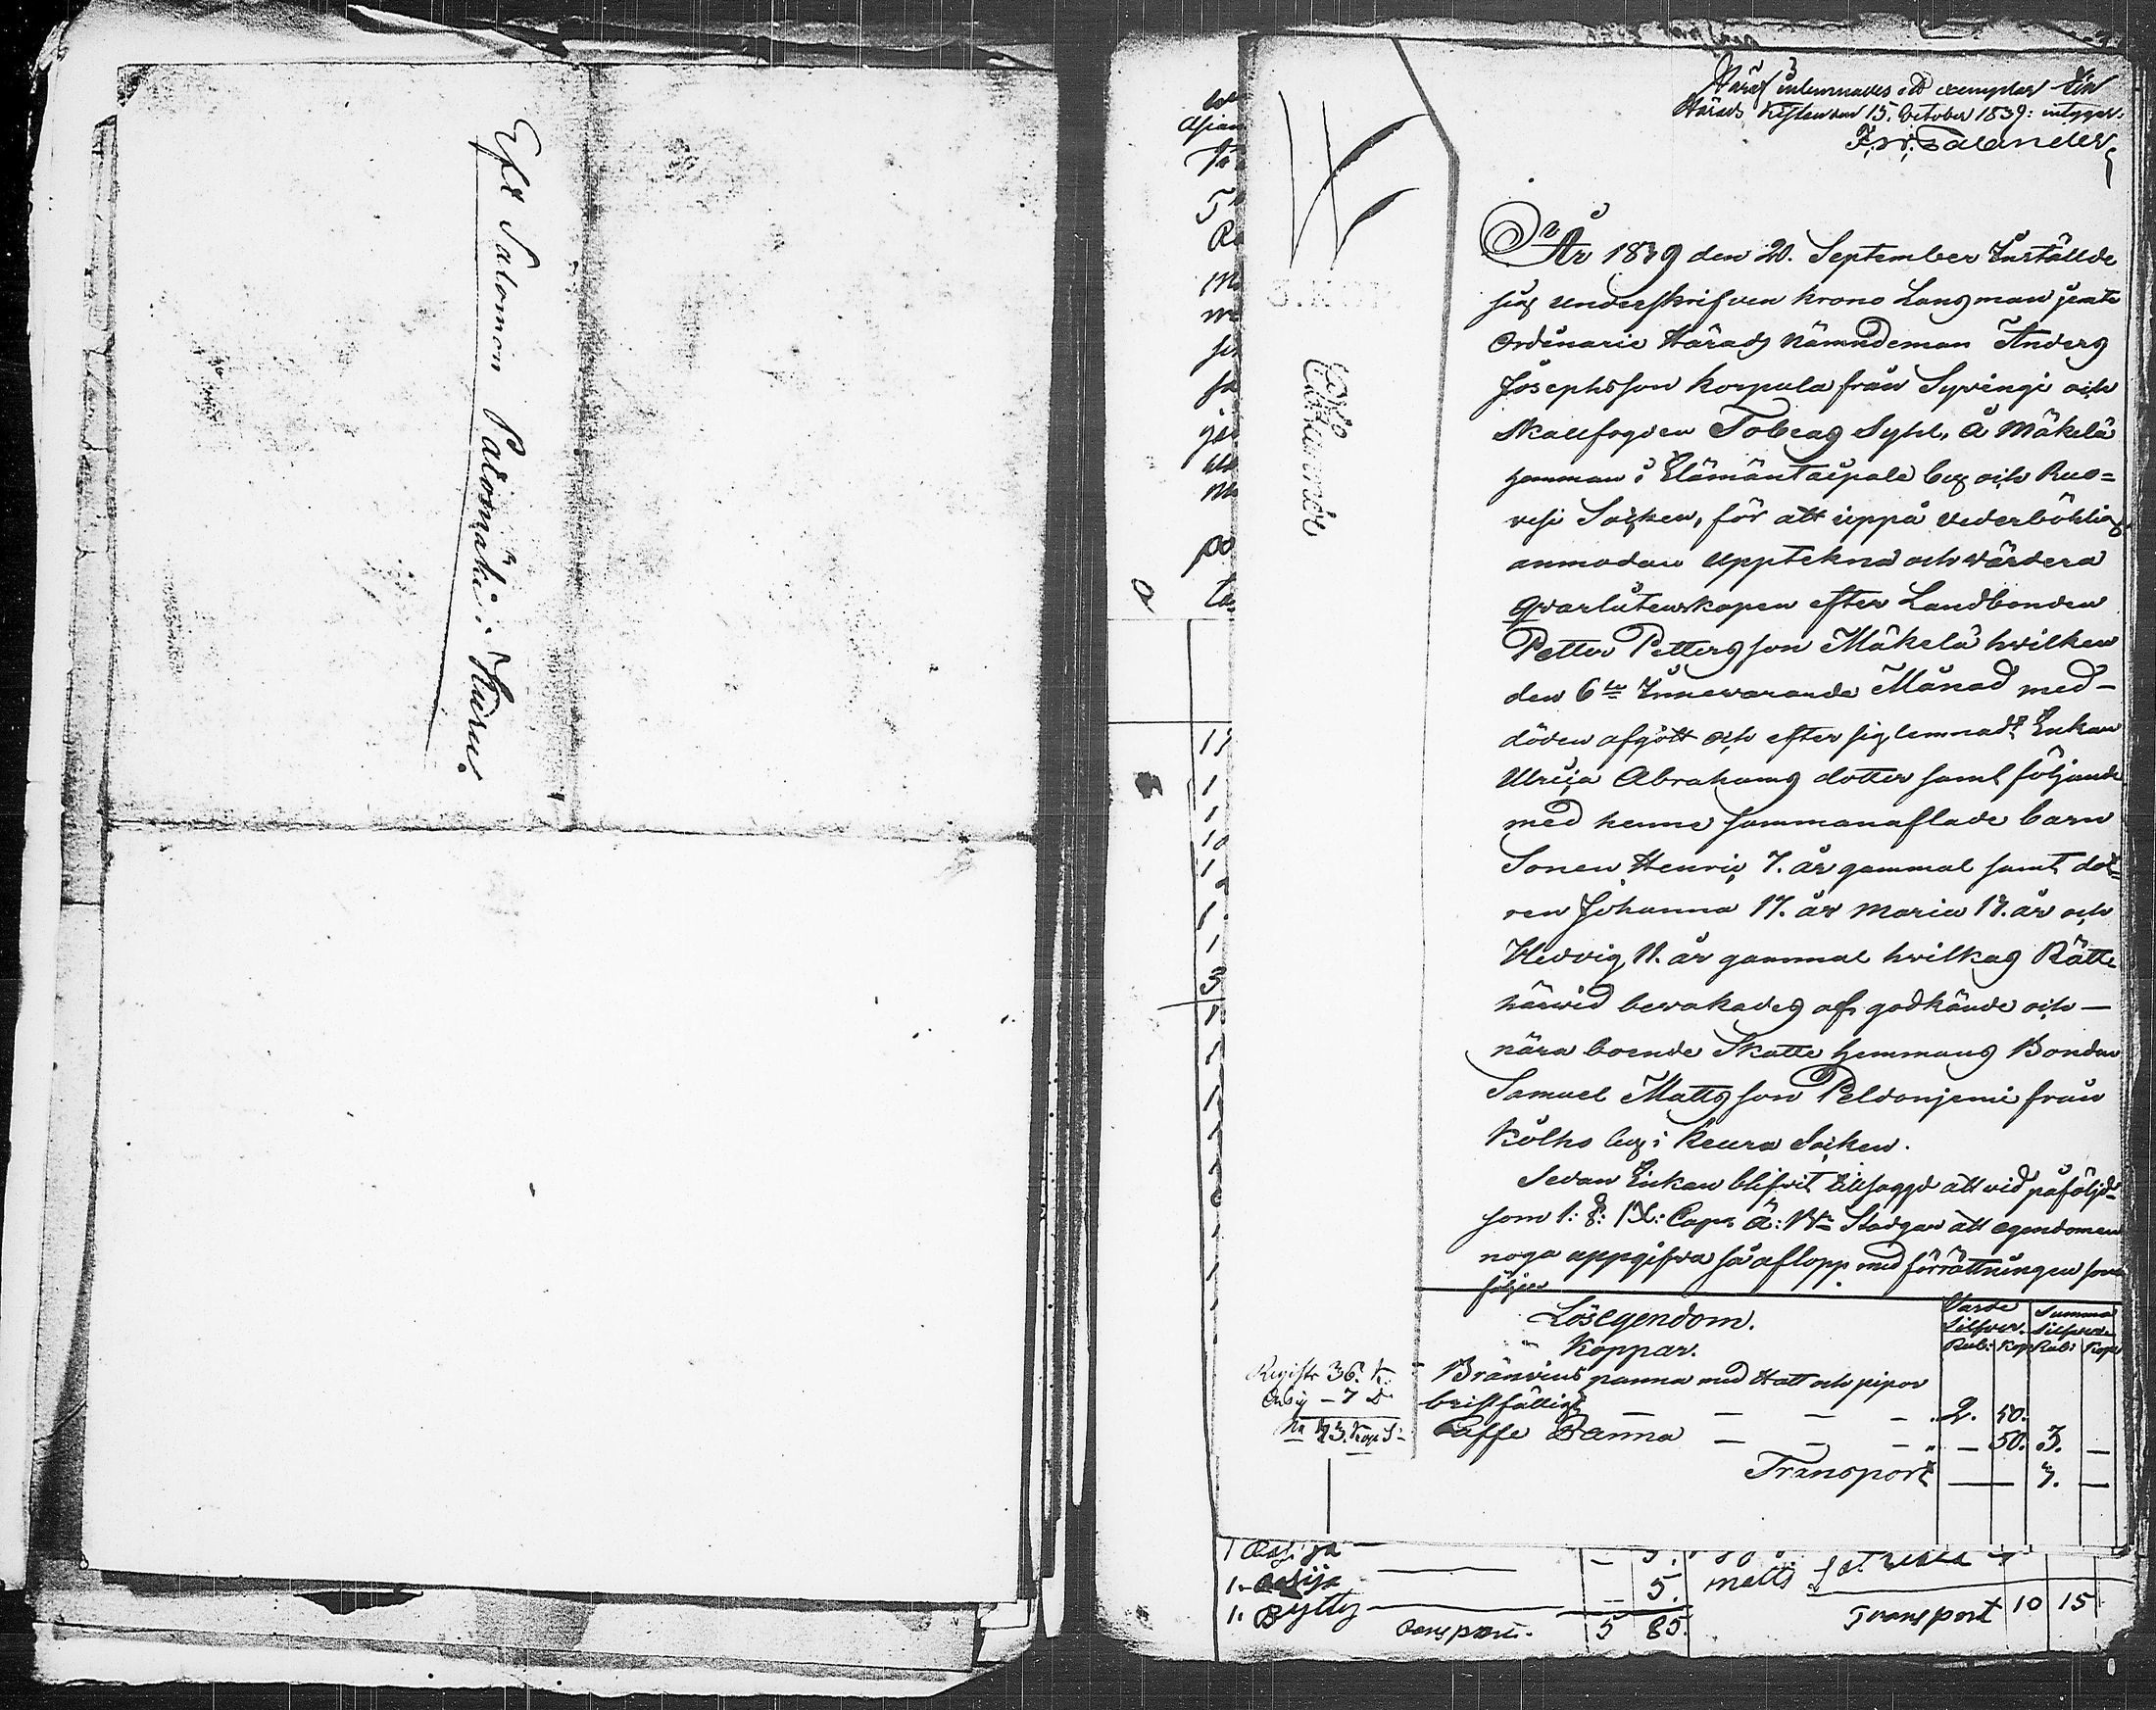 Eft Salomon Palomäki i Kuru.
Häraf inlemnades ett exemplar till
Härads Kistan den 15. October 1839: intygar.
År 1839 den 20. September Instälde
sig underskrifven Krono Länsman jemte
Ordinarie Härads Nämndeman Anders
Josephsson Korpula från Syvingi och
Skallfogden Tobias Syhl. å Mäkelä
hemman i Elämäntaipale by och Ruo=
vesi Socken, för att uppå vederbörlig
anmodan Upptekna och värdera
Qvarlåtenskapen efter Landbonden
Petter Pettersson Mäkelä hvilken
den 6te Innevarande Månad med-
döden afgått och efter sig lemnadt Enkan
Ulrica Abrahams dotter samt följande
med henne sammanaflade barn
Sonen Henric 7. år gammal samt dot=
ren Johanna 17. år Maria 17. år och
Hedvig 11. år gammal hvilkas Rätt
härvid bevakades af godkände och —
nära boende Skatte hemmans Bonden
Samuel Mattsson Peldonjemi från
Kolho by i Keuru Socken.
Sedan Enkan blifvit tillsagd att vid påföljd
som 1: §: IX: Cap: Ä: B: Stadgar att egendomen
noga uppgifva så aflopp med förrättningen som
följer
Lösegendom.
Värde Silfver. Rub: Kop
Summa Silfver. Rub: Kop
Koppar.
Bränvins panna med Hatt och pipor
bristfällig — — — — 2. 50.
Caffe Panna — — — — 50. 3. —
Transport — 3. —
Registr 36. k.
1. Bytta
Transport. 5 85.
Transport 10 15